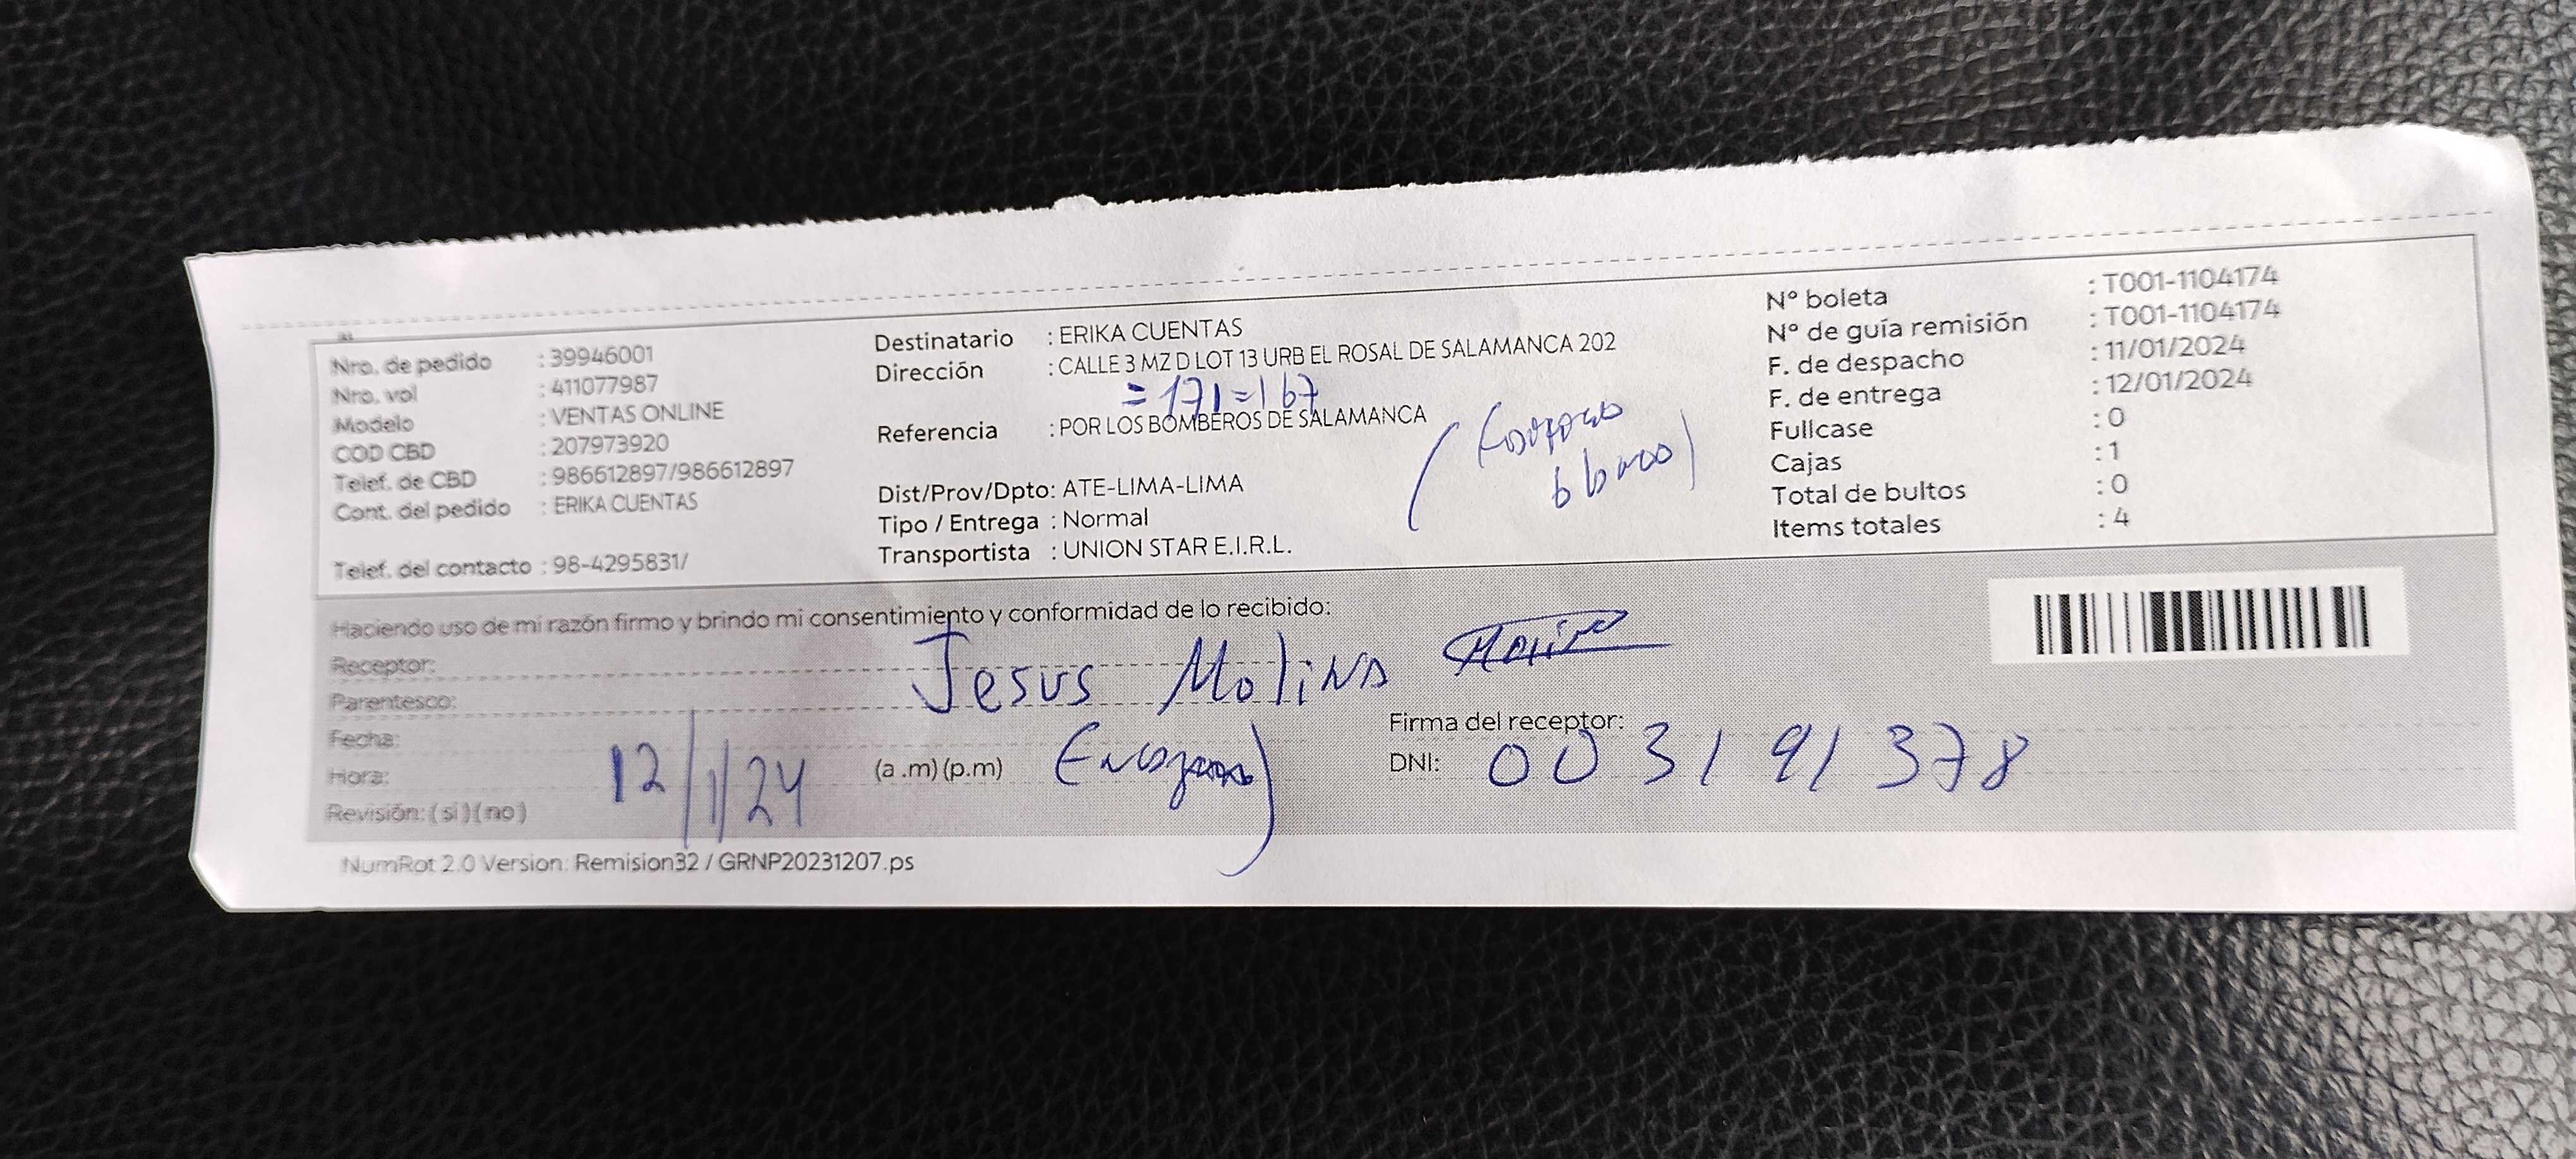 Nro. de pedido : 39946001
Nro. vol : 411077987
Modelo : VENTAS ONLINE
COD CBD : 207973920
Telef. de CBD : 986612897/986612897
Cont. del pedido : ERIKA CUENTAS
Telef. del contacto : 98-4295831/
Destinatario : ERIKA CUENTAS
Dirección : CALLE 3 MZ D LOT 13 URB EL ROSAL DE SALAMANCA 202
= 171 = 167
Referencia : POR LOS BOMBEROS DE SALAMANCA
Dist/Prov/Dpto: ATE-LIMA-LIMA
Tipo / Entrega : Normal
Transportista : UNION STAR E.I.R.L.
N° boleta : T001-1104174
N° de guía remisión : T001-1104174
F. de despacho : 11/01/2024
F. de entrega : 12/01/2024
Fullcase : 0
Cajas : 1
Total de bultos : 0
Items totales : 4
Haciendo uso de mi razón firmo y brindo mi consentimiento y conformidad de lo recibido:
Receptor: Jesus Molina
Parentesco:
Fecha: 12/1/24
Hora: (a .m) (p.m)
Revisión: ( si ) ( no )
Firma del receptor:
DNI: 003191378
NumRot 2.0 Version: Remision32 / GRNP20231207.ps